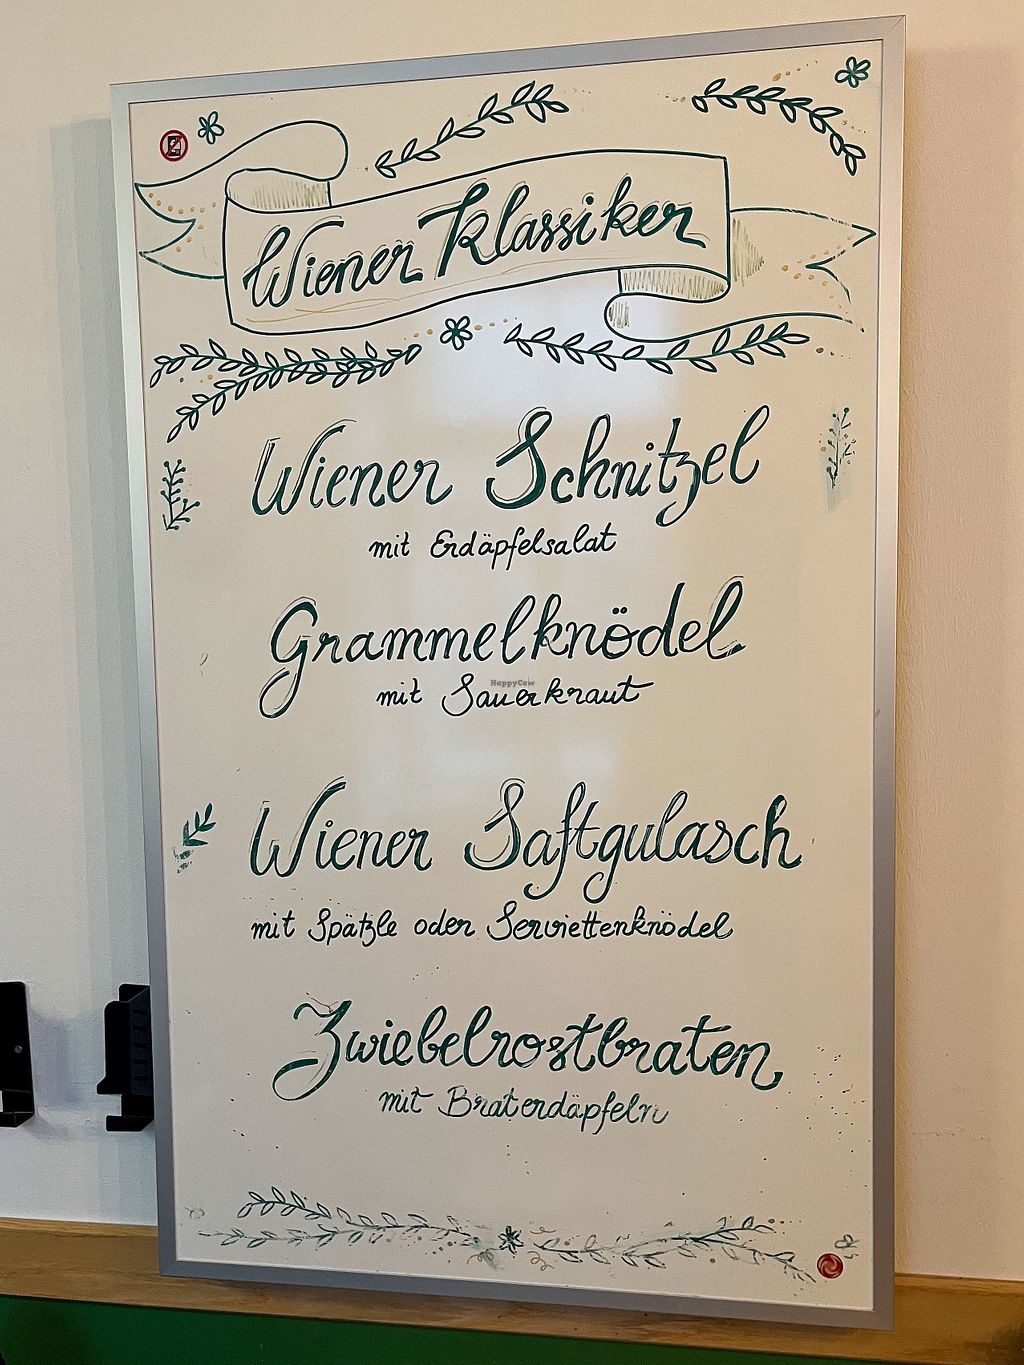 Wiener Klassiker
Wiener Schnitzel
mit Erdäpfelsalat
Grammelknödel
HappyCow
mit Sauerkraut
Wiener Saftgulasch
mit Spätzle oder Serviettenknödel
Zwiebelrostbraten
mit Braterdäpfeln